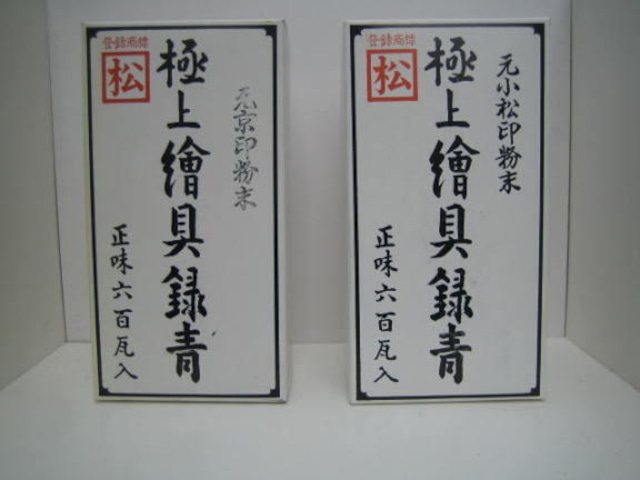 登録商標
松
極上繪具録青
元京印粉末
正味六百瓦入
登録商標
松
極上繪具録青
元小松印粉末
正味六百瓦入